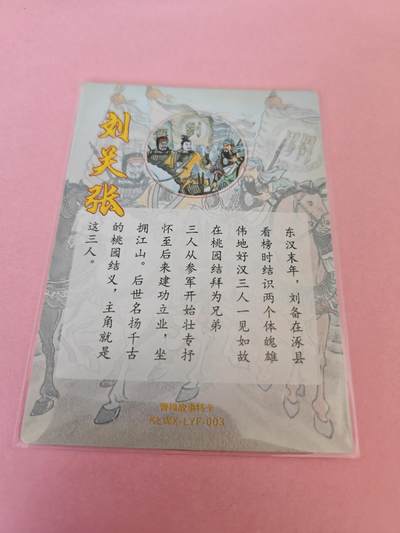 刘关张
东汉末年，刘备在涿县
看榜时结识两个体魄雄
伟地好汉三人一见如故
在桃园结拜为兄弟
三人从参军开始壮专抒
怀至后来建功立业，坐
拥江山。后世名扬千古
的桃园结义，主角就是
这三人。
故事特卡
-LYF-003